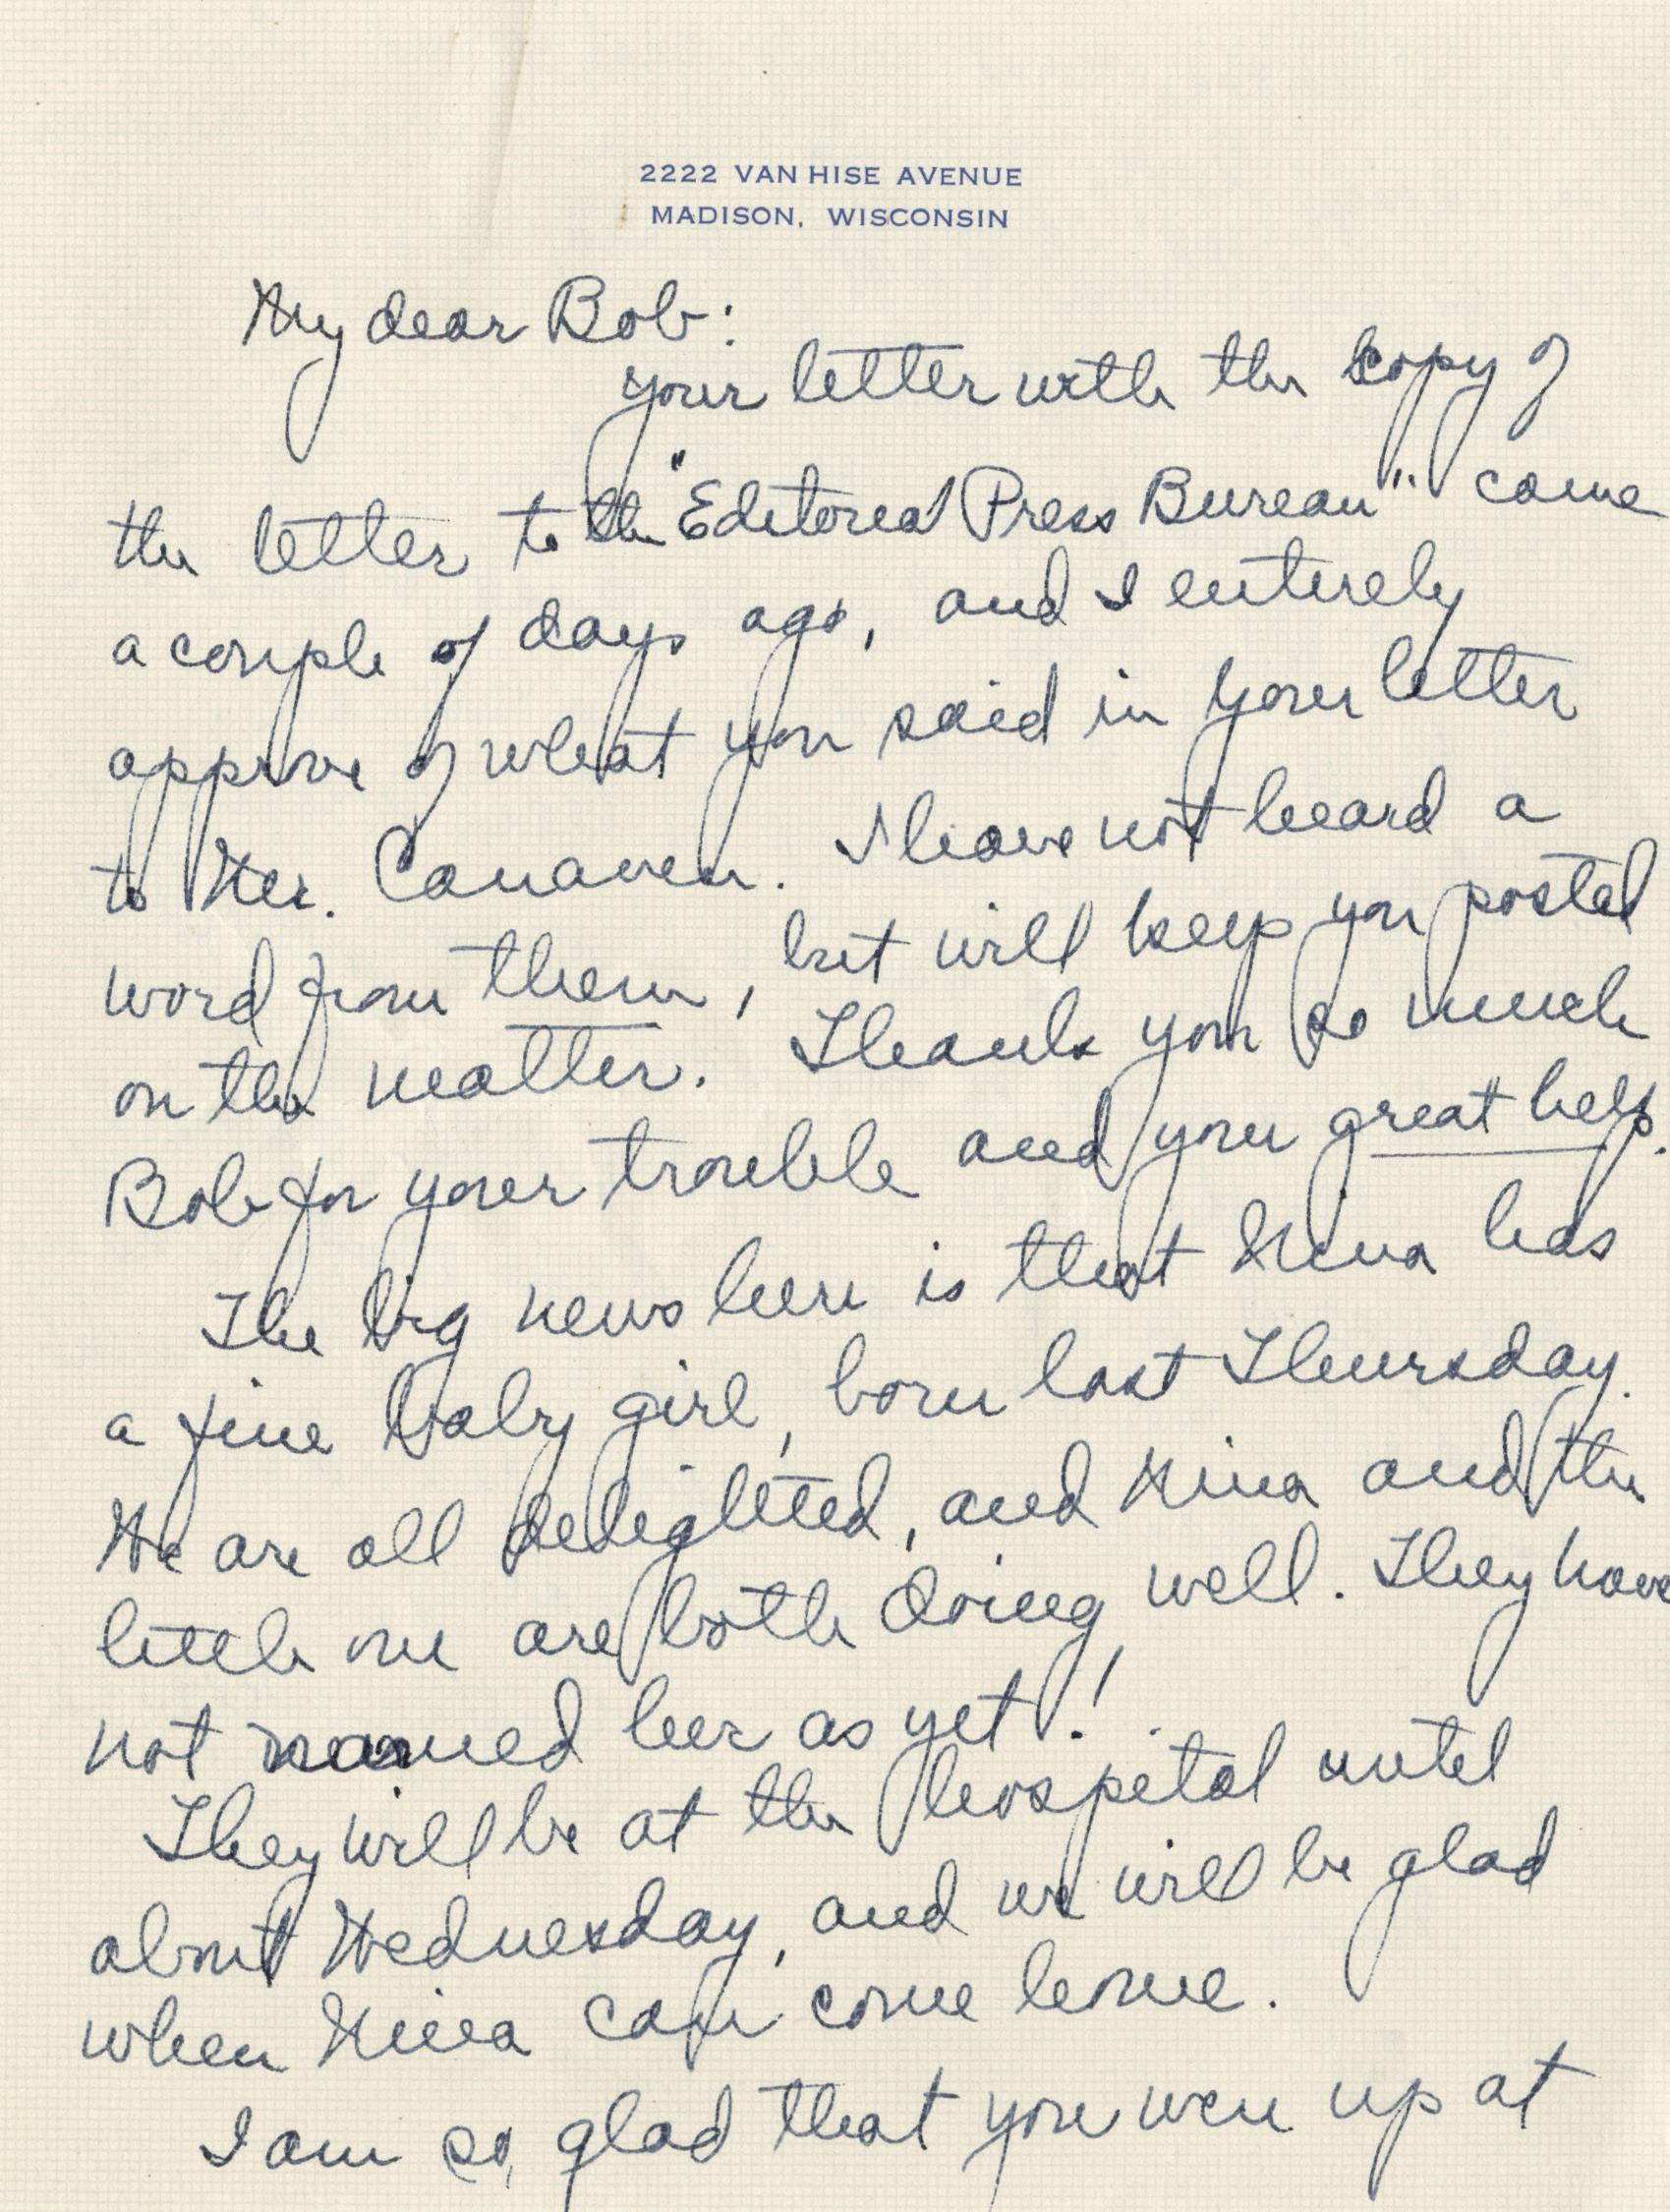 2222 VAN HISE AVENUE
MADISON, WISCONSIN
My dear Bob:
your letter with the copy of
the letter to the "Editorial Press Bureau" came
a couple of days ago, and I entirely
approve of what you said in your letter
to Mr. Canaven. I have not heard a
word from them, but will keep you posted
on the matter. Thank you so much
Bob for your trouble and your great help.
The big news here is that Nina has
a fine baby girl, born last Thursday.
We are all delighted, and Nina and the
little one are both doing well. They have
not named her as yet!
They will be at the hospital until
about Wednesday, and we will be glad
when Nina can come home.
I am so glad that you were up at